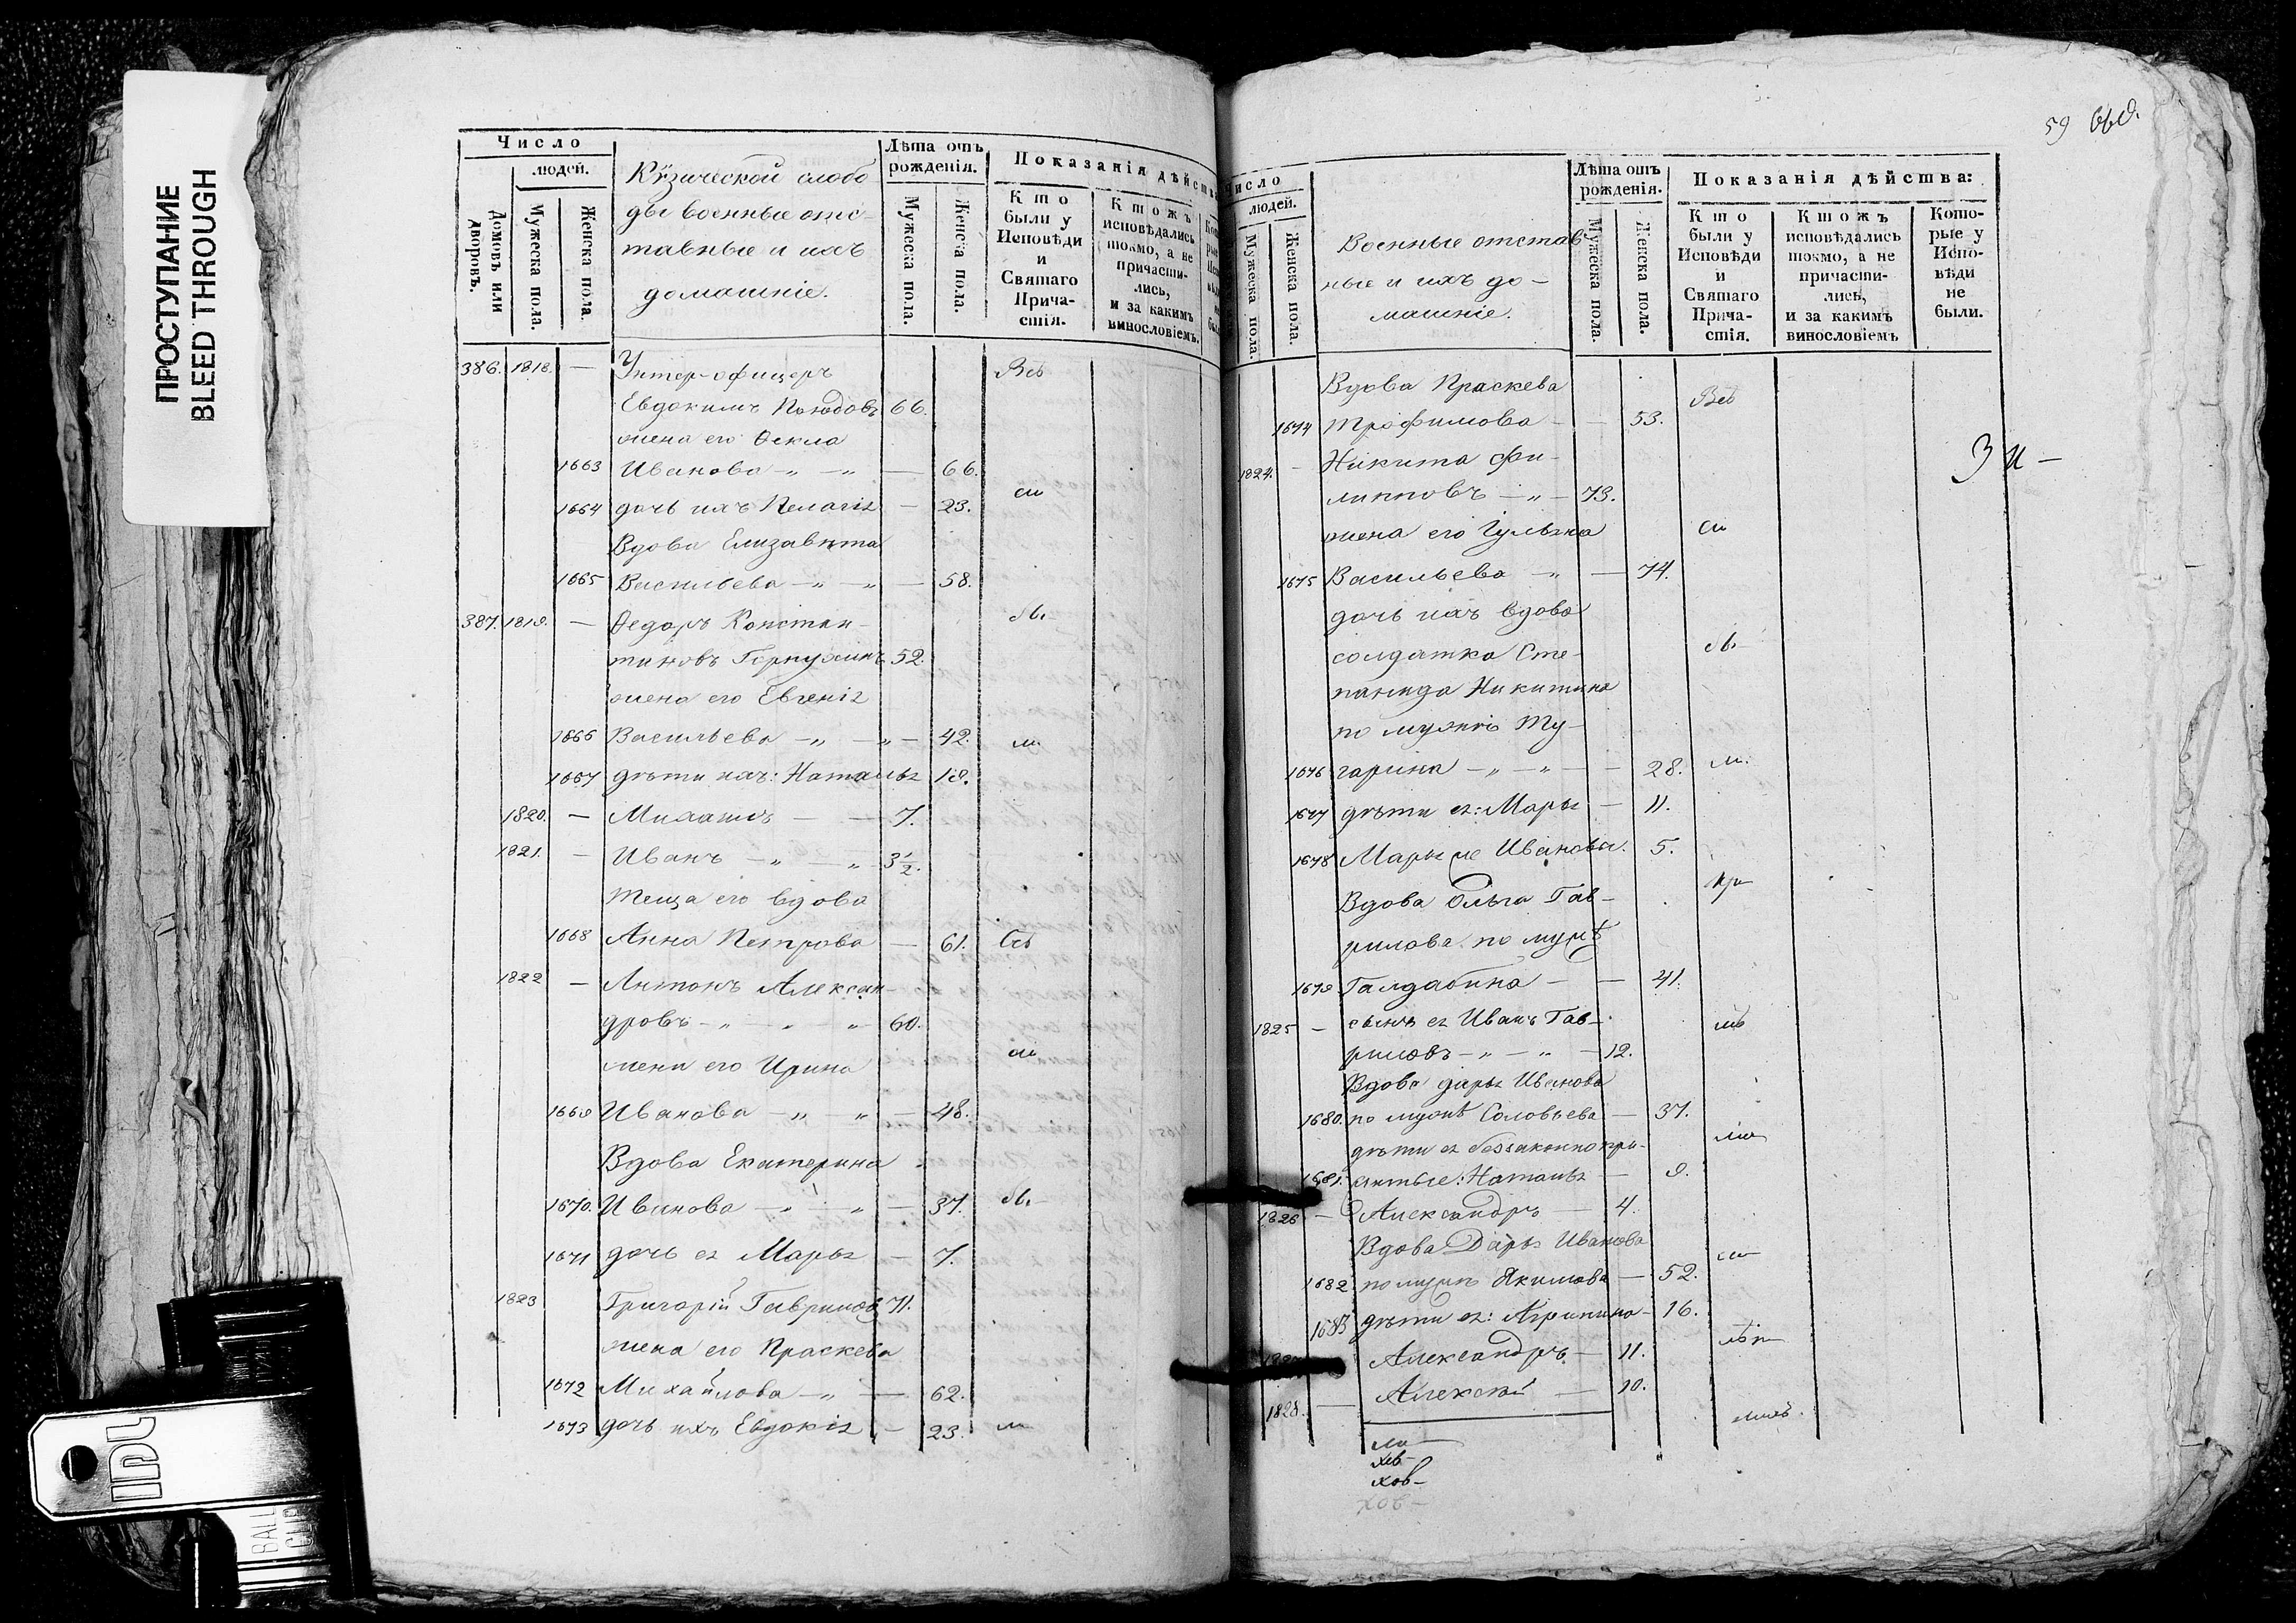 ПРОСТУПАНИЕ
BLEED THROUGH
Число
людей.
Домовъ или дворовъ.
Мужеска пола.
Женска пола.
Кузической слобо
ды военные отс-
тавные и ихъ
домашніе.
Лѣта отъ рожденія.
Мужеска пола.
Женска пола.
Показанія дѣйств
Кто были у Исповѣди и Святаго Причастія.
Ктожъ исповѣдались токмо, а не причастились, и за какимъ винословіемъ.
386. 1818. — Унтер-офицеръ Всѣ
Евдокимъ 66.
жена его Ѳекла
1663 Иванова — „ — „ — 66.
1664 дочь ихъ Пелагія — 23.
Вдова Елизавѣта
1665 Васильева — „ — „ — 58.
387. 1819. — Ѳедоръ Констан-
тиновъ 52.
жена его Евгенія
1666 Васильева — „ — „ — 42.
1667 дѣти ихъ: Наталья 19.
1820. — Михаилъ — — 7.
1821. — Иванъ — „ — „ 3 1/2.
Теща его вдова
1668 Анна Петрова — 61.
1822 — Антонъ Алексан-
дровъ — „ — „ — „ 60.
жена его Ирина
1669 Иванова — „ — „ — 48.
Вдова Екатерина
1670. Иванова — „ — „ — 37.
1671 дочь ея Марья — 7.
1823 Григорій Гавриловъ 71.
жена его Праскева
1672 Михайлова — „ — 62.
1673 дочь ихъ Евдокія — 23.
59
Число
людей.
Мужеска пола.
Женска пола.
Военные отстав-
ные и ихъ до-
машніе.
Лѣта отъ рожденія.
Мужеска пола.
Женска пола.
Показанія дѣйства:
Кто были у Исповѣди и Святаго Причастія.
Ктожъ исповѣдались токмо, а не причастились, и за какимъ винословіемъ
Которые у Исповѣди не были.
Вдова Праскева Всѣ
1674 Трофимова — — 53.
1824. — Никита Фи-
липповъ — „ — 73.
жена его Ульяна
1675 Васильева — „ — 74.
дочь ихъ вдова
солдатка Сте-
панида Никитина
по мужѣ Ту-
1676 гарина — „ — „ — — 28.
1677 дѣти ея: Марья — 11.
1678 Марья же Ивановы. 5.
Вдова Ольга Гав-
рилова по мужѣ
1679 Галдабина — — 41.
1825 — сынъ ея Иванъ Гав-
риловъ — „ — „ — 12.
Вдова Дарья Иванова
1680. по мужѣ Соловьева — 37.
дѣти ея беззаконнопри-
1681. житые: Наталья — 9.
1826 — Александръ — 4.
Вдова Дарья Иванова
1682. по мужѣ Якимова — 52.
1683 дѣти ея: Агрипина — 16.
Александръ — 11.
1828. — Алексѣй — 10.